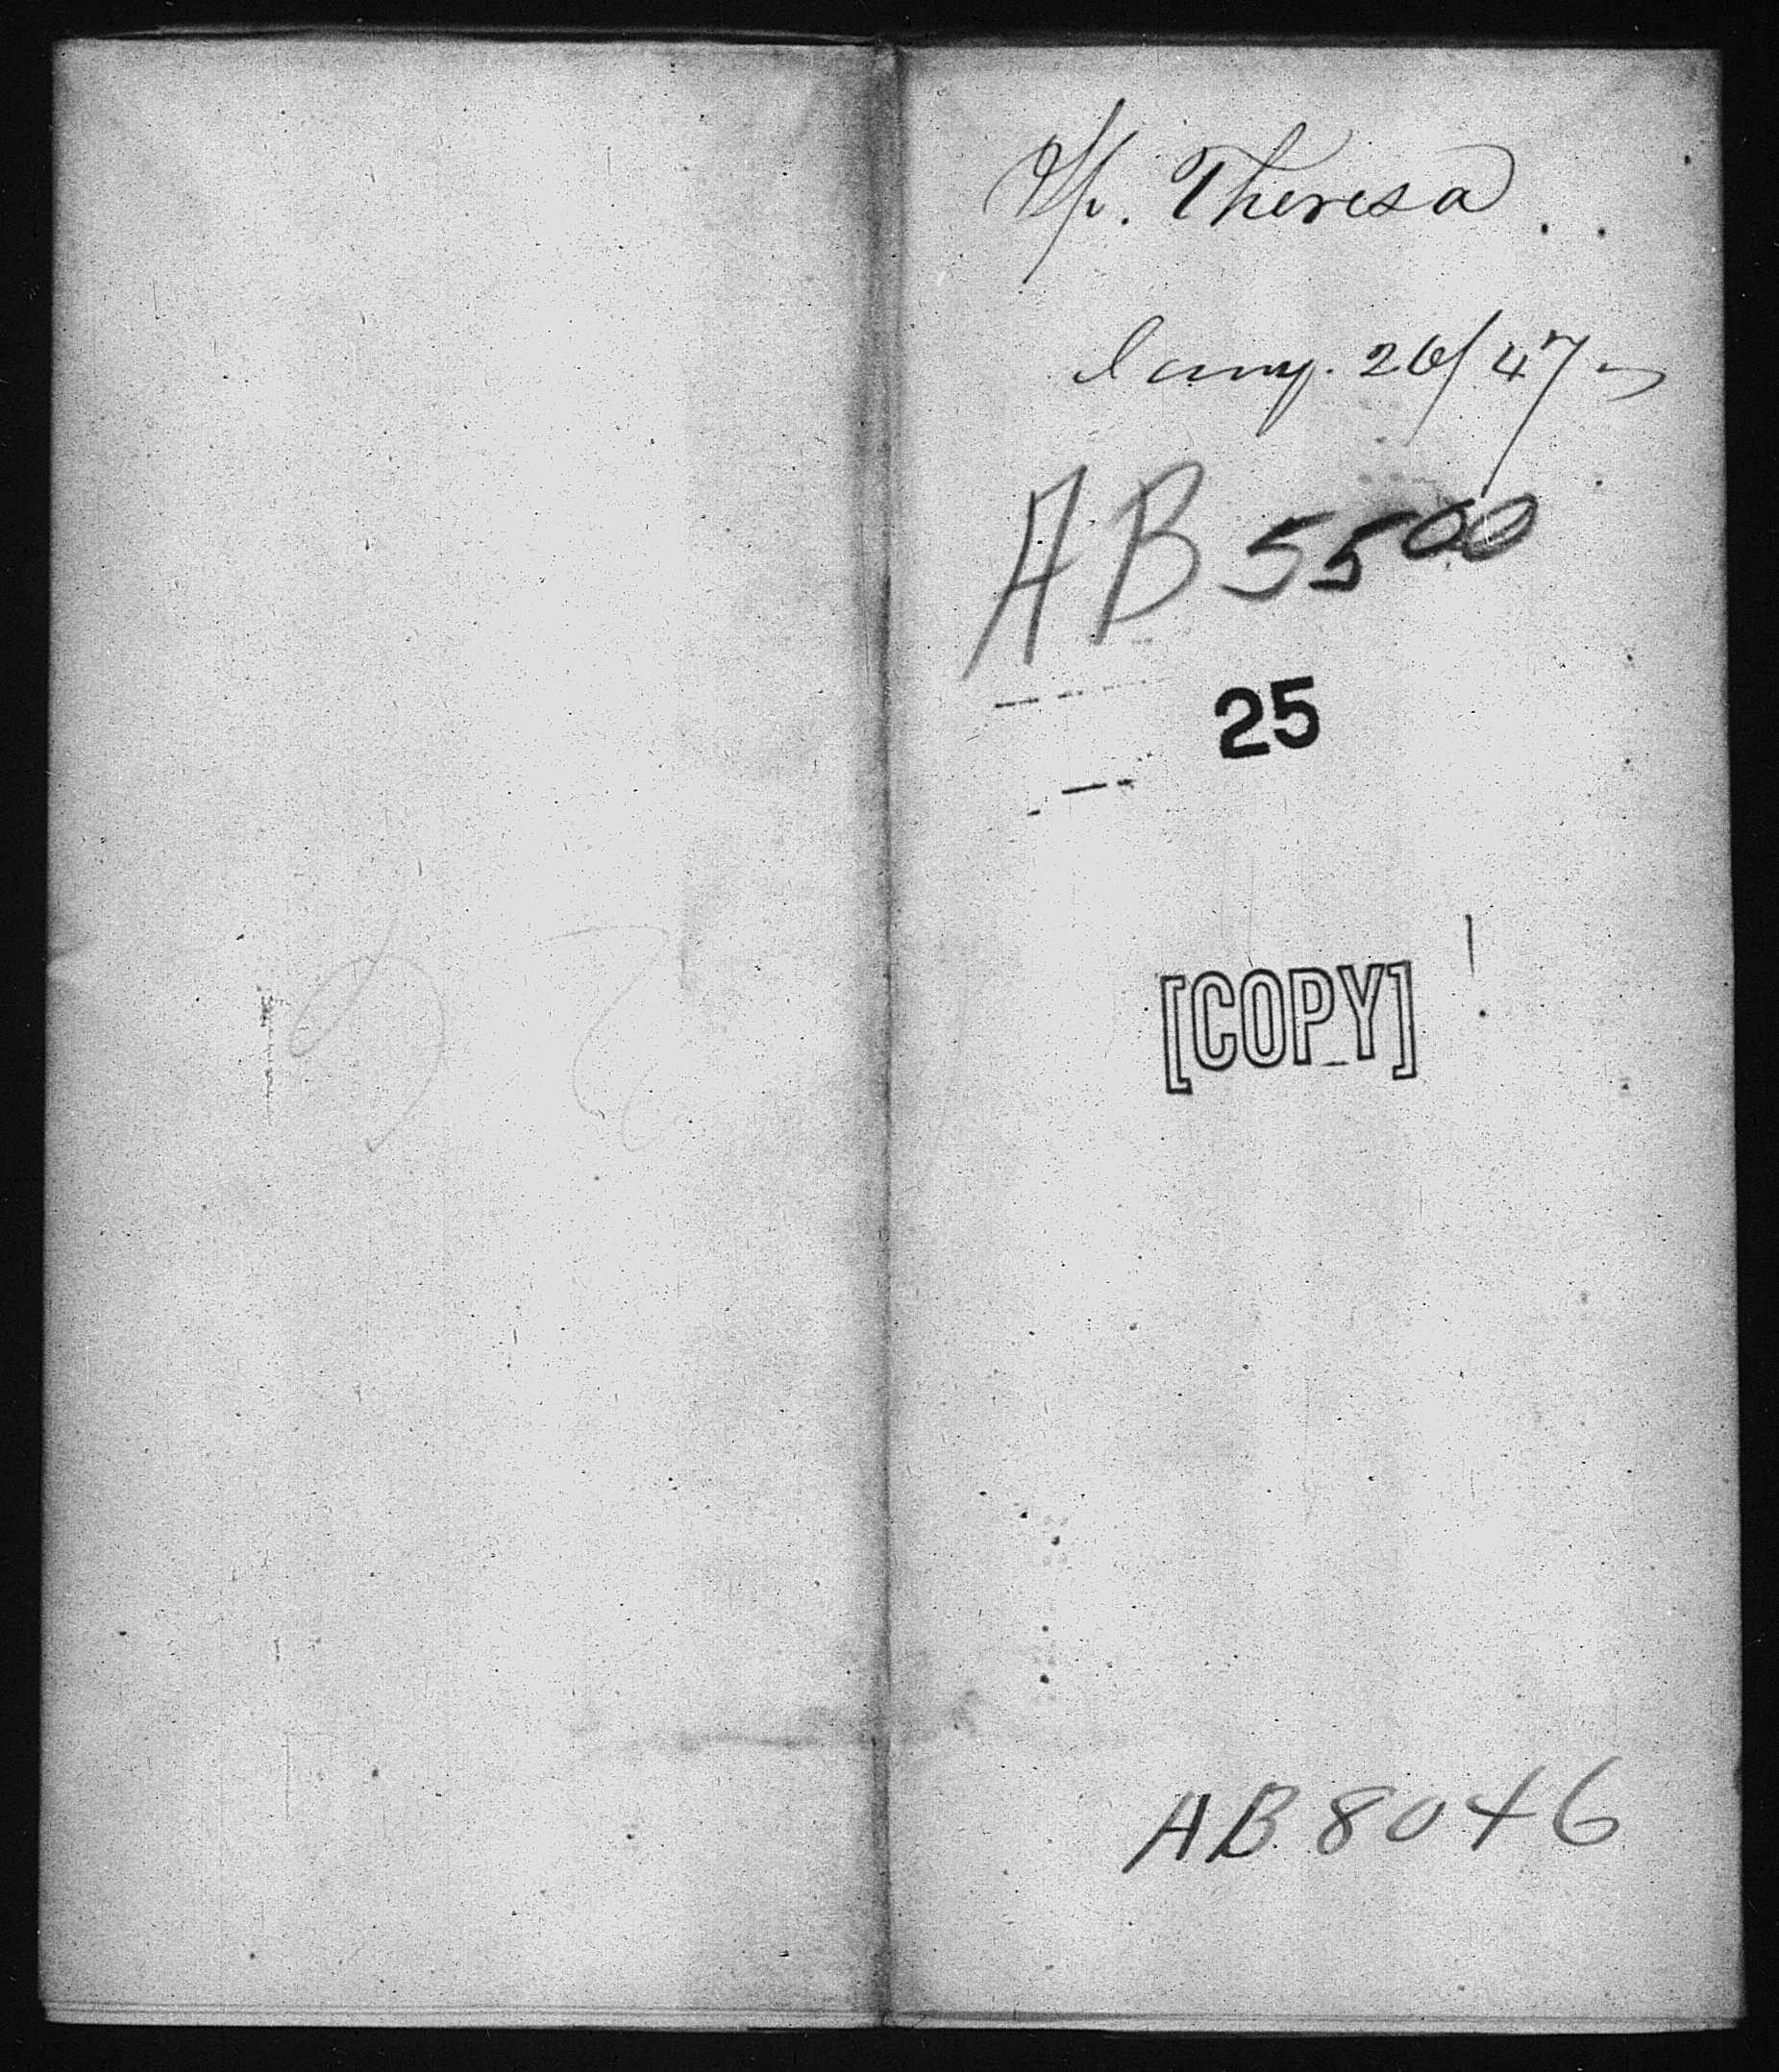 Sp. Theresa.
Jany. 26/47
AB 5500
25
[COPY]
AB 8046